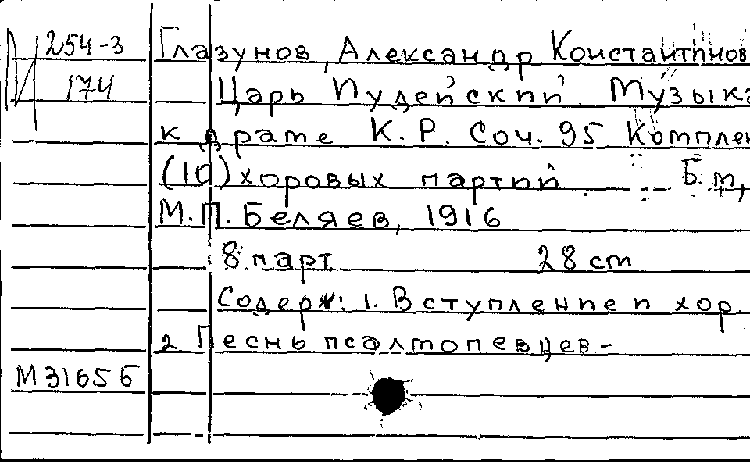 И 254-3
174
Глазунов, Александр Константинов
Царь Иудейский. Музыка
к драме К. Р. Соч. 95 Комплек
(10) хоровых партий Б.м.,
М.П. Беляев, 1916
8 парт 28 cm
Содерж: 1. Вступление и хор.
2 Песнь псалтопевцев-
М 31656